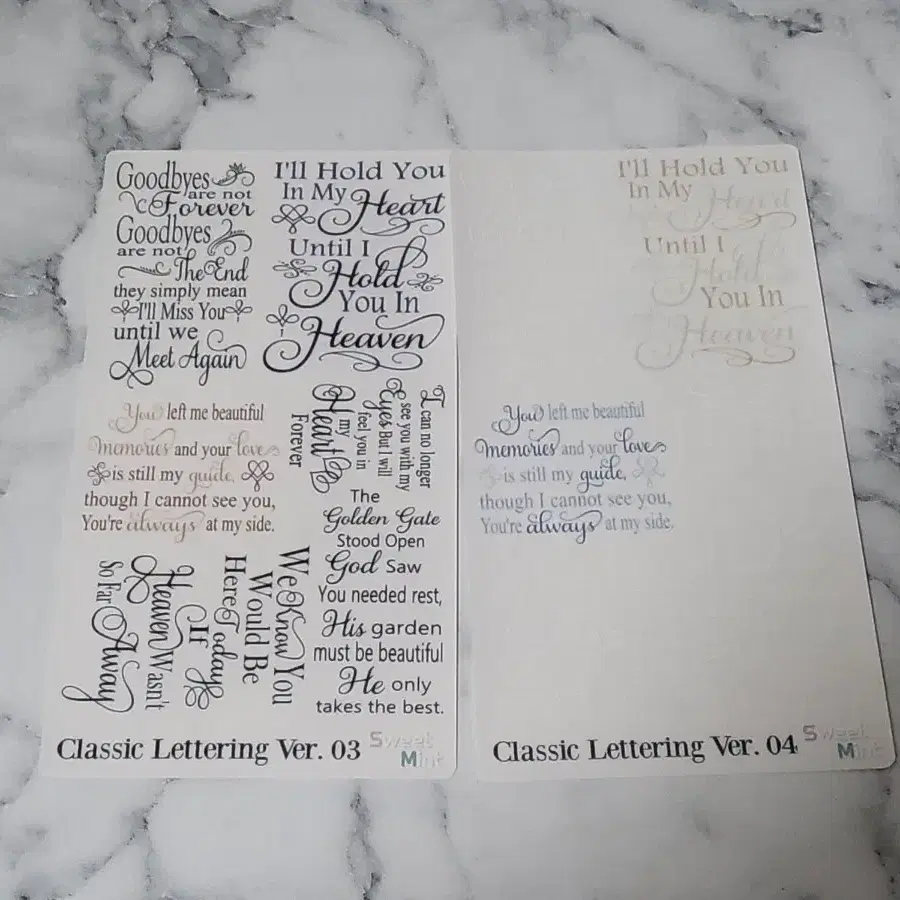 Goodbyes
are not
Forever
Goodbyes
are not
The End
they simply mean
I'll Miss You
until we
Meet Again
I'll Hold You
In My
Heart
Until I
Hold
You In
Heaven
You left me beautiful
memories and your love
is still my guide,
though I cannot see you,
You're always at my side.
I can no longer
see you with my
Eyes But I will
feel you in
my
Heart
Forever
We Know You
Would Be
Here Today
If
Heaven Wasn't
So Far
Away
The
Golden Gate
Stood Open
God Saw
You needed rest,
His garden
must be beautiful
He only
takes the best.
Classic Lettering Ver. 03
Sweet
Mint
I'll Hold You
In My
Heart
Until I
Hold
You In
Heaven
You left me beautiful
memories and your love
is still my guide,
though I cannot see you,
You're always at my side.
Classic Lettering Ver. 04
Sweet
Mint